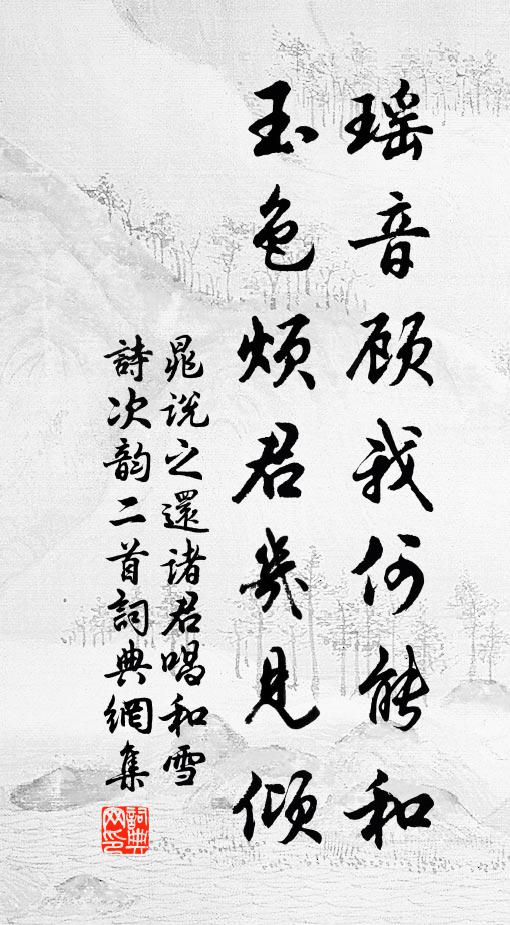 瑶音顾我何能和
玉色烦君几見倾
晁说之還诸君唱和雪
詩次韵二首詞典網集
詞典
网印